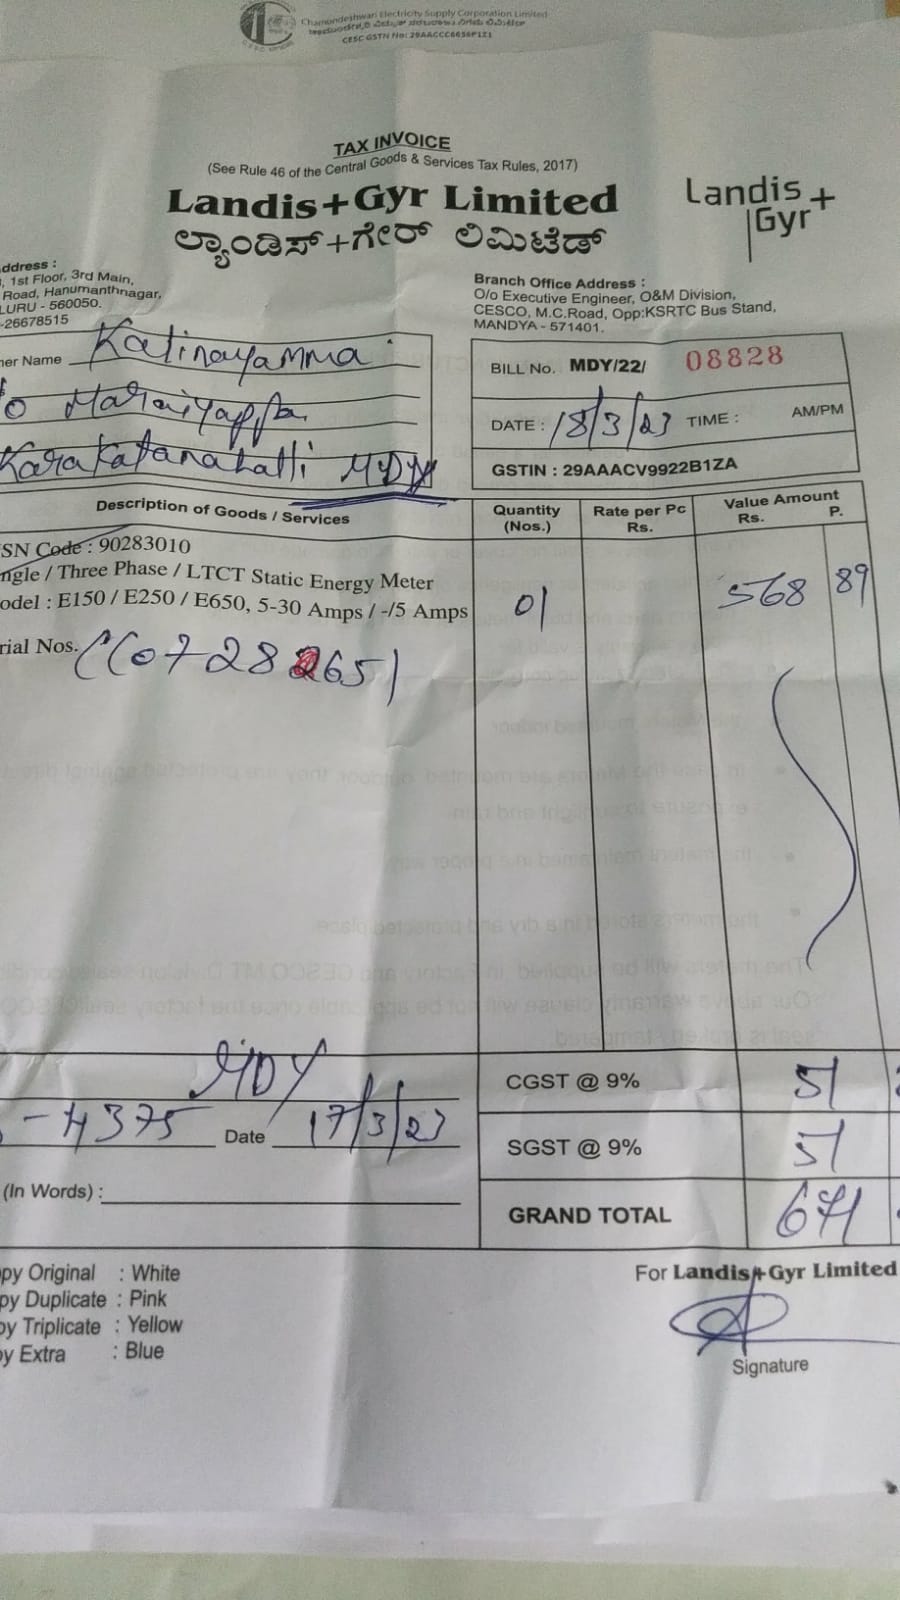 Chamundeshwari Electricity Supply Corporation Limited
CESC GSTN No: 29AACCC6636P1Z1
TAX INVOICE
(See Rule 46 of the Central Goods & Services Tax Rules, 2017)
Landis+Gyr Limited
ಲ್ಯಾಂಡಿಸ್+ಗೇರ್ ಲಿಮಿಟೆಡ್
Landis+
Gyr
ddress :
, 1st Floor, 3rd Main,
Road, Hanumanthnagar,
LURU - 560050.
-26678515
Branch Office Address :
O/o Executive Engineer, O&M Division,
CESCO, M.C.Road, Opp:KSRTC Bus Stand,
MANDYA - 571401.
er Name Kalinayamma
o
Karakatanahalli MDY
BILL No. MDY/22/ 08828
DATE : 18/3/23 TIME : AM/PM
GSTIN : 29AAACV9922B1ZA
Description of Goods / Services Quantity (Nos.) Rate per Pc Rs. Value Amount Rs. P.
SN Code : 90283010
ngle / Three Phase / LTCT Static Energy Meter
odel : E150 / E250 / E650, 5-30 Amps / -/5 Amps 01 568 89
rial Nos.
MDY
CGST @ 9% 51
-4375 Date 17/3/23
SGST @ 9% 51
(In Words) :
GRAND TOTAL 671
py Original : White
py Duplicate : Pink
py Triplicate : Yellow
y Extra : Blue
For Landis+Gyr Limited
Signature